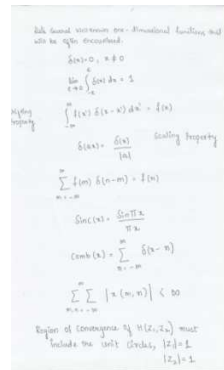 several one-dimensional functions that
will be often encountered.
δ(x)=0, x≠0
lim ε→0 ∫_{-ε}^{ε} δ(x) dx = 1
∫_{-∞}^{∞} f(x') δ(x-x') dx' = f(x)
property
δ(ax) = δ(x)/|a| Scaling Property
∑_{m=-∞}^{∞} f(m) δ(n-m) = f(n)
Sinc(x) = Sin πx / πx
Comb(x) = ∑_{n=-∞}^{∞} δ(x-n)
∑∑_{m,n=-∞}^{∞} |x(m,n)| < ∞
Region of Convergence of H(Z₁,Z₂) must
include the unit circles, |Z₁|=1
|Z₂|=1